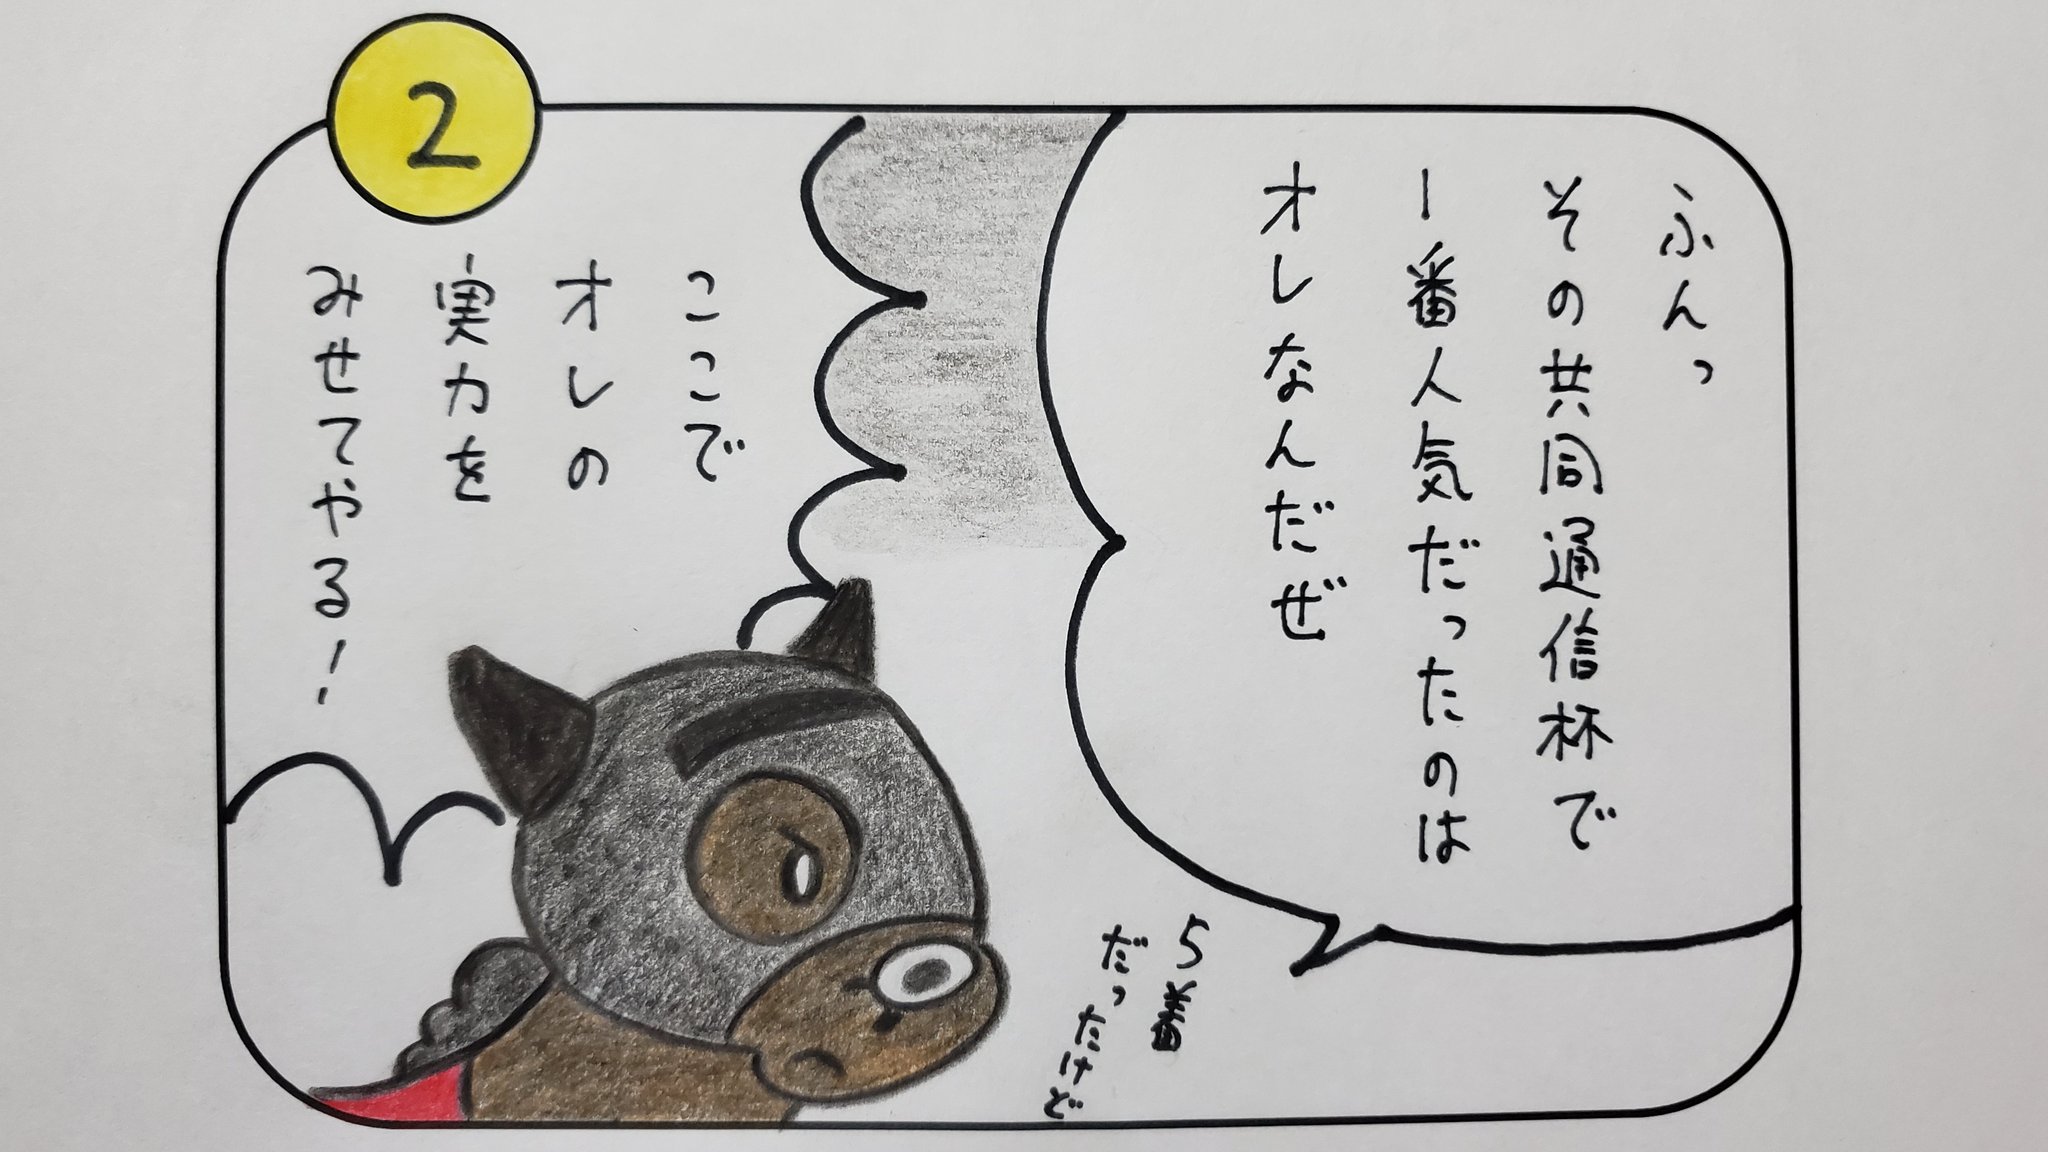 2
ふんっ
その共同通信杯で
1番人気だったのは
オレなんだぜ
5番
だったけど
ここで
オレの
実力を
みせてやる!